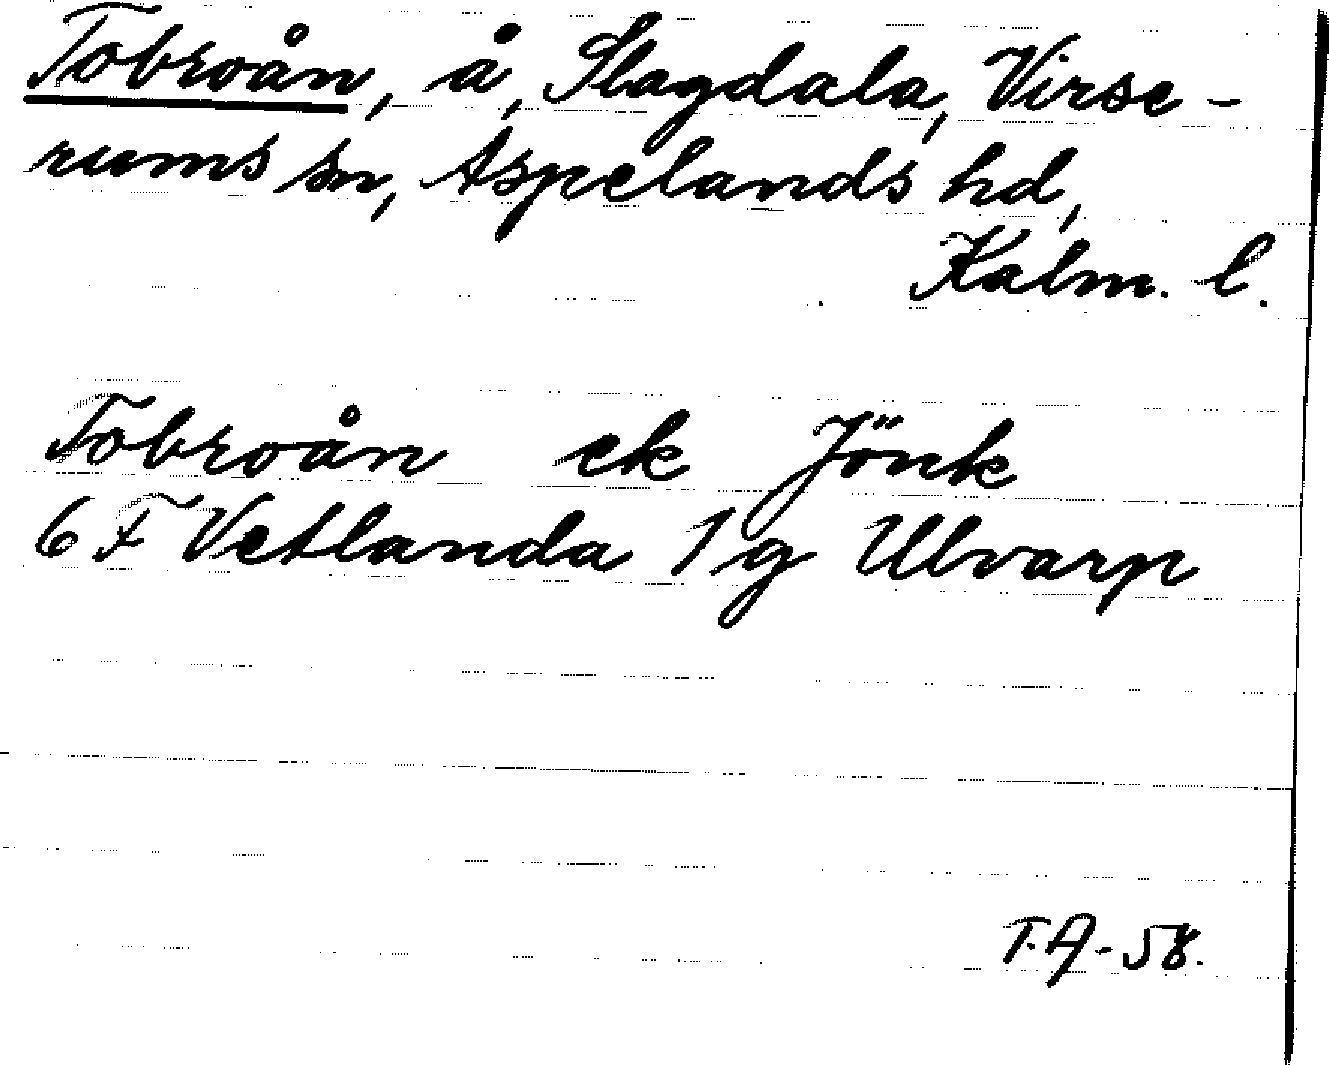 Tobroån, å, Slagdala, Virse-
rums sn, Aspelands hd,
Kalm. l.
Tobroån ek Jönk
6 F Vetlanda 1 g Ulvarp
T.A-58.